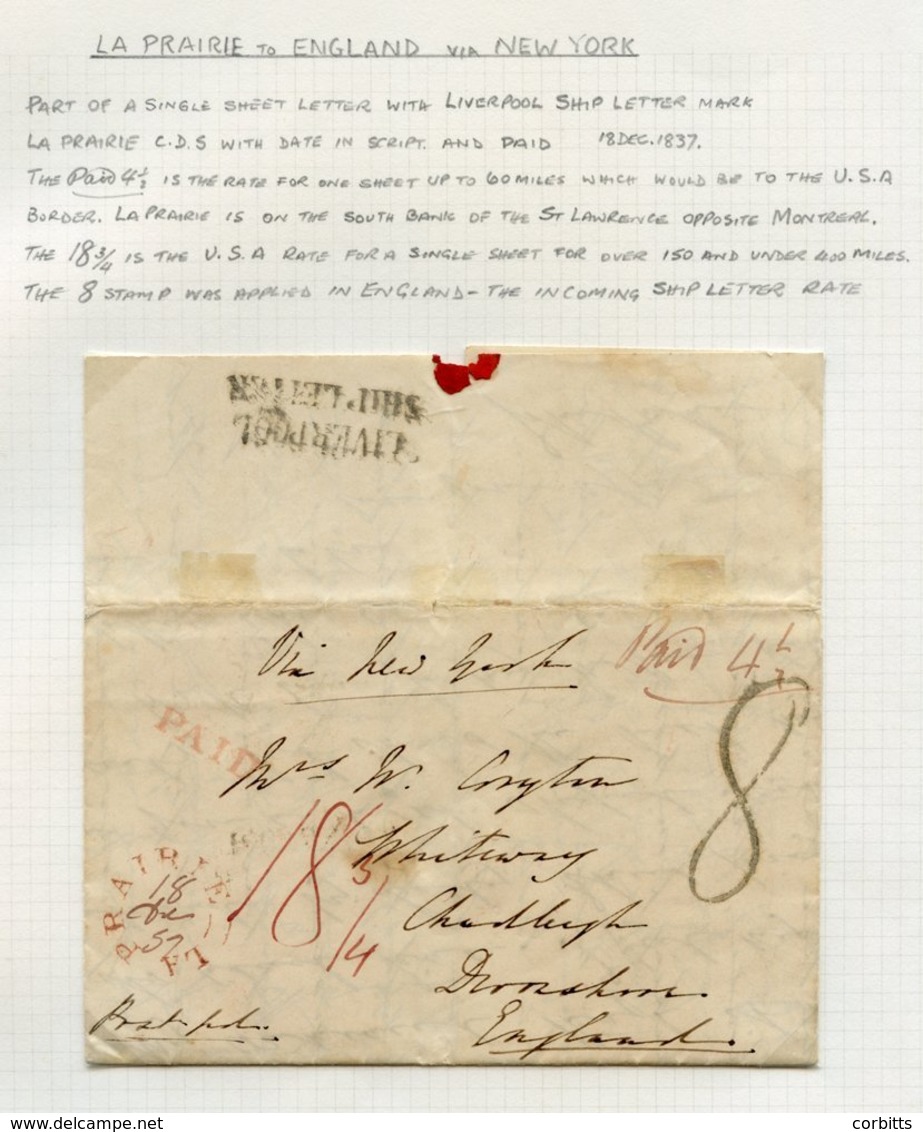 LA PRAIRIE TO ENGLAND VIA NEW YORK
PART OF A SINGLE SHEET LETTER WITH LIVERPOOL SHIP LETTER MARK
LA PRAIRIE C.D.S WITH DATE IN SCRIPT. AND PAID 18 DEC. 1837.
THE Paid 4½ IS THE RATE FOR ONE SHEET UP TO 60 MILES WHICH WOULD BE TO THE U.S.A
BORDER. LA PRAIRIE IS ON THE SOUTH BANK OF THE ST LAWRENCE OPPOSITE MONTREAL.
THE 18¾ IS THE U.S.A RATE FOR A SINGLE SHEET FOR OVER 150 AND UNDER 400 MILES.
THE 8 STAMP WAS APPLIED IN ENGLAND - THE INCOMING SHIP LETTER RATE
LIVERPOOL
SHIP LETTER
Via New York Paid 4½
PAID
8
Mrs W. Coryton
18¾
Whiteway
Chudleigh
LA PRAIRIE
18
Dec
37
Devonshire
England
Post pd.
corbitts